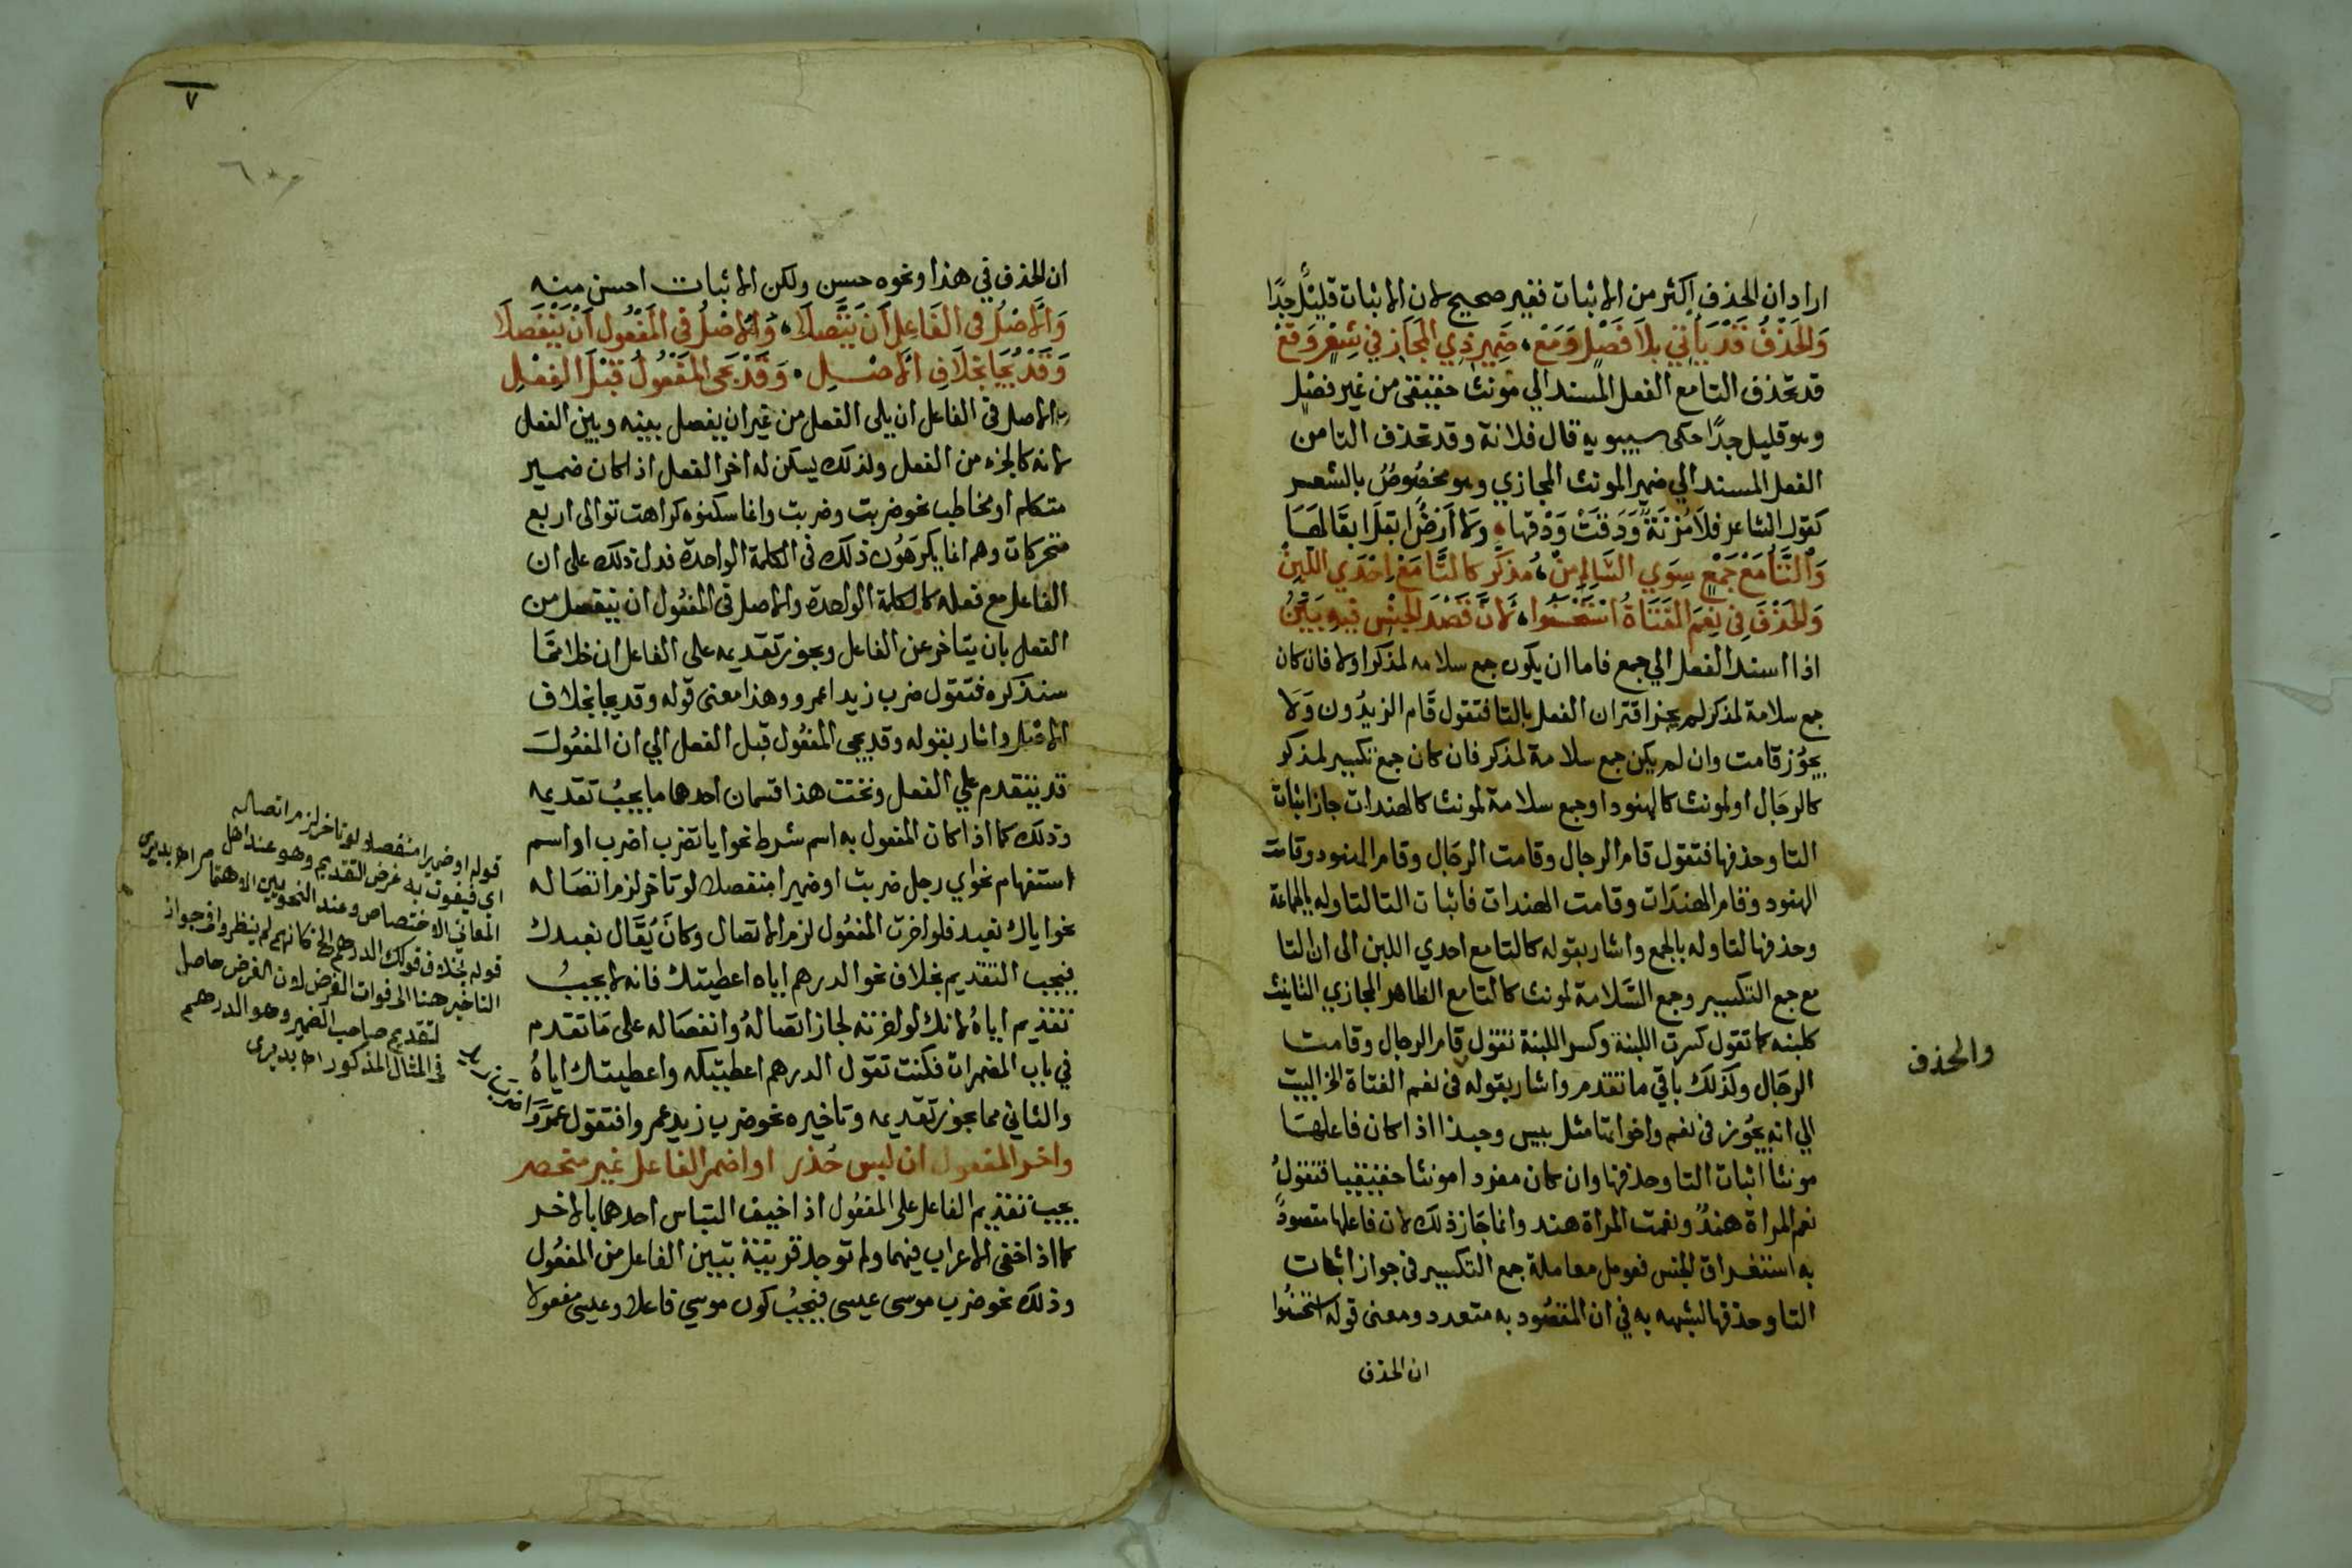 اراد ان الحذف اكثر من الاثبات فغير صحيح لان الاثبات قليل جدًا
وَالحَذْفُ قَدْ يَأتِي بِلاَ فَصْلٍ وَمَعْ ضَمِيرِ ذِي المَجَازِ في شِعْرٍ وَقَعْ
قد تحذف التا مع الفعل المسند الي مونث حقيقى من غير فصل
وهو قليل جدًا حكى سيبويه قال فلانة وقد تحذف التا من
الفعل المسند الي ضمير المونث المجازي وهو مخصُوصٌ بالشعر
كقول الشاعر فلاَ مُزْنَةٌ وَدَقَتْ وَدْقَها ولاَ أَرْضَ ابقلَ ابقَالهَا
وَالتَّا مَعْ جَمْعٍ سِوَي السَّالِمِ مِنْ مُذَكَّرٍ كالتَّا مَعْ اِحْدَي اللَّبِنْ
وَالحَذْفَ فِي نِعْمَ الفَتَاةُ اسْتَحْسَنُوا لاَنَّ قَصْدَ الجِنْسِ فيهِ بَيِّنُ
اذا اسند الفعل الي جمع فاما ان يكون جمع سلامه لمذكر اولا فان كان
جمع سلامة لمذكر لم يجز اقتران الفعل بالتا فتقول قَام الزيدُون وَلاَ
يجوُز قامت وان لم يكن جمع سلامة لمذكر فان كان جمع تكسير لمذكر
كالرجَال او لمونث كالهنود او جمع سلامة لمونث كالهندات جاز اثبات
التا وحذفها فتقول قام الرجال وقامت الرجَال وقام الهنود وقامت
الهنود وقام الهندَات وقامت الهندات فاثبات التا لتاوله بالجماعة
وحذفها لتاوله بالجمع واشار بقوله كالتا مع احدي اللبن الى ان التا
مع جمع التكسير وجمع السَّلامة لمونث كالتا مع الظاهر المجازي التانيث
كلبنه كما تقول كسرت اللبنة وكسر اللبنة تقول قام الرجال وقامت
الرجَال وكذلك باقي ما تقدم واشار بقوله فى نعم الفتاة الخ البيت
الي انه يجُوز فى نعم واخواتها مثل بيس وحبذا اذا كان فاعلهَا
مونثا اثبات التا وحذفها وان كان مفردا مونثا حقيقيا فتقولُ
نعم المراة هندٌ ونعمت المراة هند وانما جَاز ذلك لان فاعلها مقصودٌ
به استغراق الجنس فعومل معاملة جمع التكسير فى جواز اثبات
التا وحذفها لشبهه به في ان المقصُود به متعدد ومعنى قوله استحسنُوا
ان الحذف
والحذف
٧
ان الحذف في هذا ونحوه حسن ولكن الاثبات احسن منه
وَالاَصْلُ فى الفَاعِلِ اَنْ يَتَّصِلاَ وَالاَصْلُ فى المَفْعُول اَنْ يَنْفَصِلاَ
وَقَدْ يُجَا بِخلاَفِ الاَصْلِ وَقَدْ يَجى المَفْعُولُ قَبْلَ الفِعْلِ
الاصل فى الفاعل ان يلى الفعل من غير ان يفصل بينه وبين الفعل
لانه كالجزء من الفعل ولذلك يسكن له اخر الفعل اذا كان ضمير
متكلم او مخاطب نحو ضربت وضربت وانما سكنوه كراهت توالى اربع
متحركات وهم انما يكرهُون ذلك فى الكلمة الواحدة فدل ذلك على ان
الفاعل مع فعله كالكلمة الواحدة والاصل فى المفعُول ان ينفصل من
الفعل بان يتاخر عن الفاعل ويجوز تقديمه على الفاعل ان خلا ممَّا
سنذكره فتقول ضرب زيدا عمرو وهذا معنى قوله وقد يجا بخلاف
الاصْل واشار بقوله وقد يجى المفعُول قبل الفعل الي ان المفعُول
قد يتقدم علي الفعل وتحت هذا قسمان احدهما ما يجبُ تقديمه
وذلك كما اذا كان المفعول به اسم شرط نحو ايا تضرب اضرب او اسم
استفهام نحو اي رجل ضربت او ضميرا منفصلا لو تاخر لزم اتصَاله
نحو اياك نعبد فلو اخرت المفعُول لزم الاتصال وكانَ يُقَال نعبدك
فيجب التقديم بخلاف نحو الدرهم اياه اعطيتك فانه لا يجبُ
تقديم اياهُ لانك لو اخرته لجاز اتصالهُ وانفصَاله على مَا تقدم
في باب المضمرات فكنت تقول الدرهم اعطيتكه واعطيتك اياهُ
والثاني مما يجوز تقديمه وتاخيره نحو ضرب زيد عمروا فتقول عمرَوا
ضرب زيد
واخر المفعول ان لبس حُذر او اضمر الفاعل غير منحصر
يجب تقديم الفاعل على المفعُول اذا خيف التباس احدهما بالاخر
كما اذا خفى الاعراب فيهما ولم توجد قرينة تبين الفاعل من المفعُول
وذلك نحو ضرب موسى عيسى فيجبُ كون موسي فاعلا وعيسى مفعولا
قوله او ضميرا منفصلا لو تاخر لزم اتصاله
اى فيفوت به غرض التقديم وهو عند اهل
المعاني الاختصاص وعند النحويين الاهتمام اهـ بديرى
قوله بخلاف قولك الدرهم الخ كانهم لم ينظروا فى جواز
التاخير هنا الى فوات الغرض لان الغرض حاصل
لتقديم صاحب الضمير وهو الدرهم
فى المثال المذكور اهـ بديرى